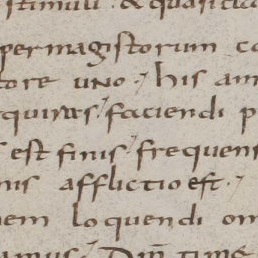 stimuli . & quasi cla
per magistorum co
tore uno . his am
quiras, faciendi p
est finis, frequens
nis afflictio est .
nem loquendi om
amus, Din time